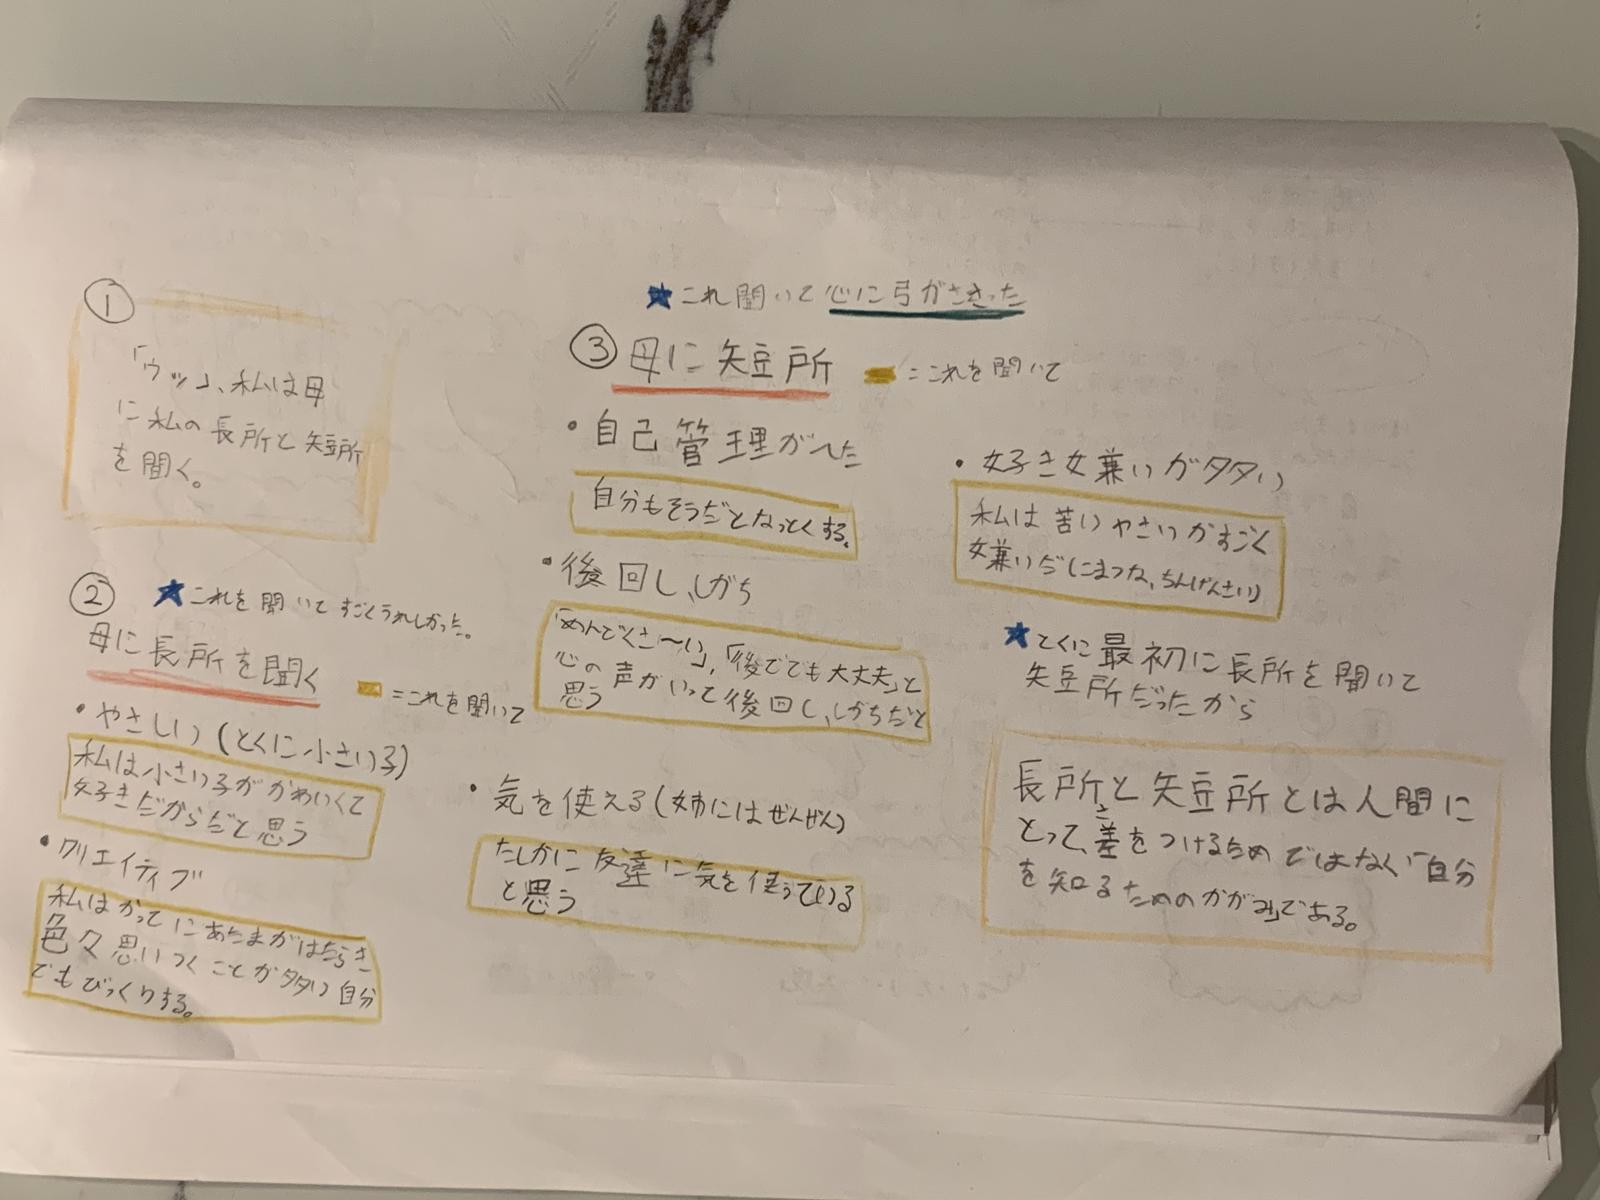 ①
「ウッ」、私は母
に私の長所と短所
を聞く。
② ★これを聞いてすごくうれしかった。
母に長所を聞く ＝これを聞いて
・やさしい(とくに小さい子)
私は小さい子がかわいくて
好きだからだと思う
・クリエイティブ
私はかってにあたまがはたらき
色々思いつくことが多い自分
でもびっくりする。
・気を使える(姉にはぜんぜん)
たしかに友達に気を使っている
と思う
★これ聞いて心に弓がささった
③母に短所 ＝これを聞いて
・自己管理がへた
自分もそうだとなっとくする。
・後回し、しがち
「めんどくさ〜い」、「後ででも大丈夫」と
心の声がいって後回し、しがちだと
思う
・好き嫌いが多い
私は苦いやさいがすごく
嫌いだ(こまつな、ちんげんさい)
★とくに最初に長所を聞いて
短所だったから
長所と短所とは人間に
とって、差をつけるためではなく「自分
さ
を知るためのかがみ」である。